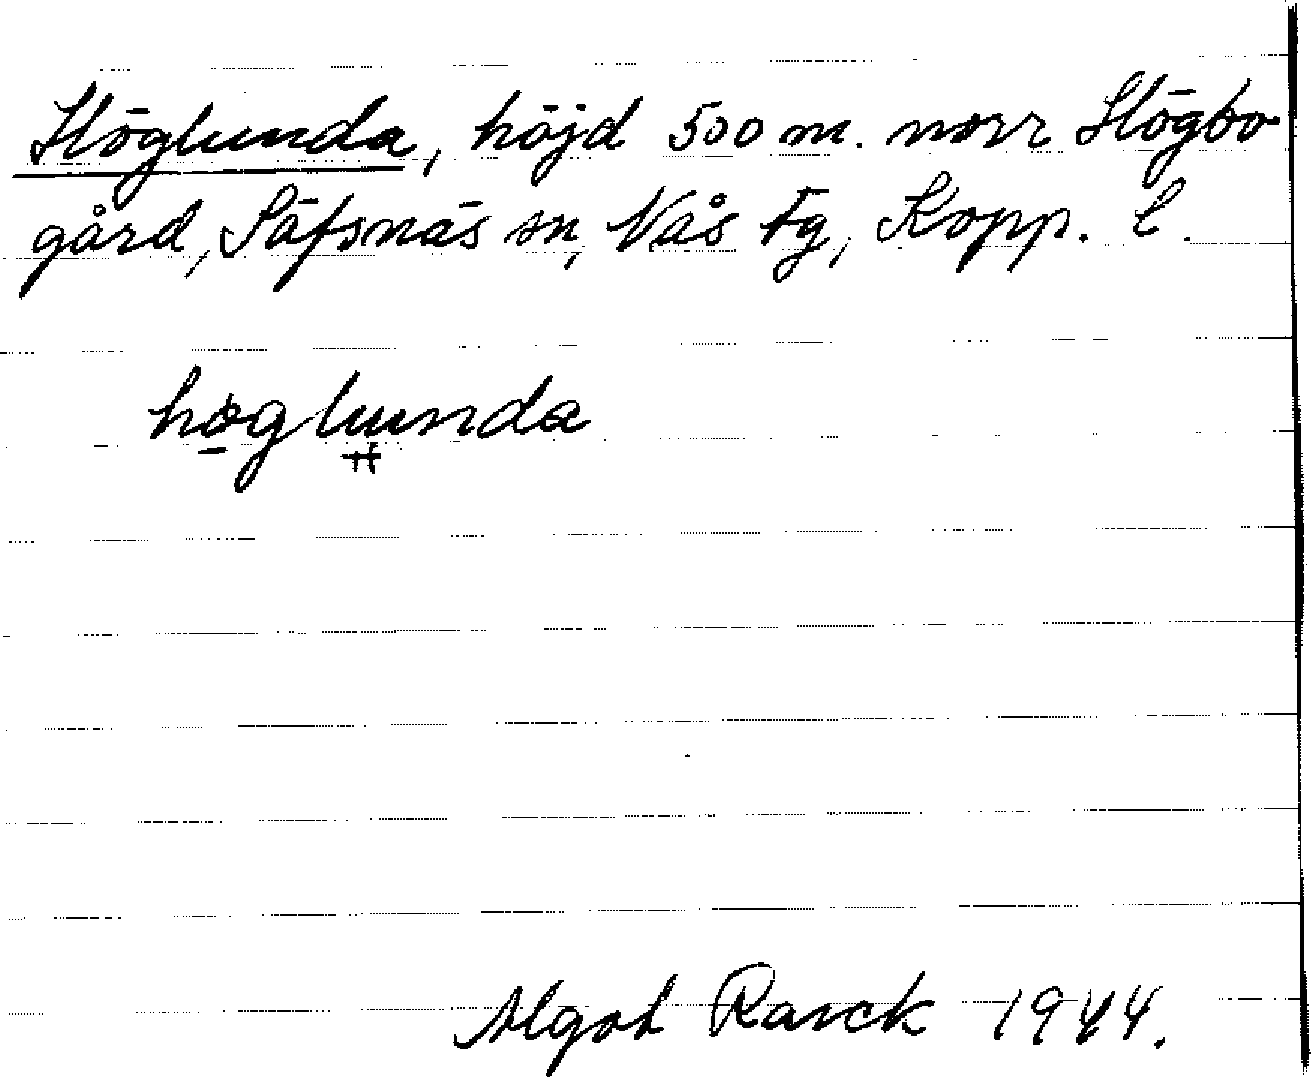 Höglunda, höjd 500 m. norr Högbo
gård, Säfsnäs sn, Nås Fg, Kopp. l.
höglunda
Algot Rarck 1944.